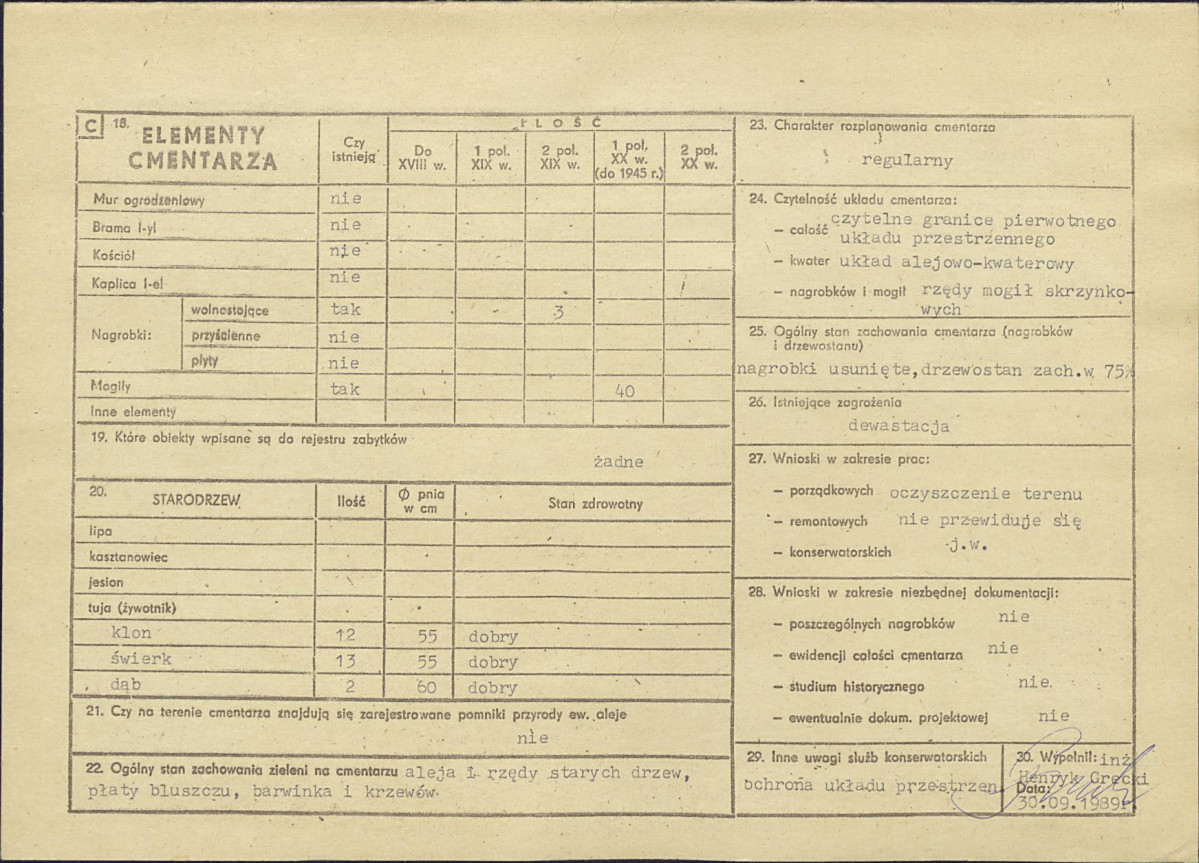 C 18. ELEMENTY CMENTARZA
Czy istnieją
ILOŚĆ
Do XVIII w.
1 poł. XIX w.
2 poł. XIX w.
1 poł. XX w. (do 1945 r.)
2 poł. XX w.
Mur ogrodzeniowy nie
Brama I-yl nie
Kościół nie
Kaplica I-el nie
Nagrobki:
wolnostojące tak 3
przyścienne nie
płyty nie
Mogiły tak 40
Inne elementy
19. Które obiekty wpisane są do rejestru zabytków
żadne
20. STARODRZEW Ilość Ø pnia w cm Stan zdrowotny
lipa
kasztanowiec
jesion
tuja (żywotnik)
klon 12 55 dobry
świerk 13 55 dobry
dąb 2 60 dobry
21. Czy na terenie cmentarza znajdują się zarejestrowane pomniki przyrody ew. aleje
nie
22. Ogólny stan zachowania zieleni na cmentarzu aleja i rzędy starych drzew,
płaty bluszczu, barwinka i krzewów.
23. Charakter rozplanowania cmentarza
regularny
24. Czytelność układu cmentarza:
— całość czytelne granice pierwotnego
układu przestrzennego
— kwater układ alejowo-kwaterowy
— nagrobków i mogił rzędy mogił skrzynko-
wych
25. Ogólny stan zachowania cmentarza (nagrobków
i drzewostanu)
nagrobki usunięte, drzewostan zach.w 75%
26. Istniejące zagrożenia
dewastacja
27. Wnioski w zakresie prac:
— porządkowych oczyszczenie terenu
— remontowych nie przewiduje się
— konserwatorskich j.w.
28. Wnioski w zakresie niezbędnej dokumentacji:
— poszczególnych nagrobków nie
— ewidencji całości cmentarza nie
— studium historycznego nie.
— ewentualnie dokum. projektowej nie
29. Inne uwagi służb konserwatorskich
ochrona układu przestrzen.
30. Wypełnił: inż
Henryk Grecki
Data:
30.09.1989r.